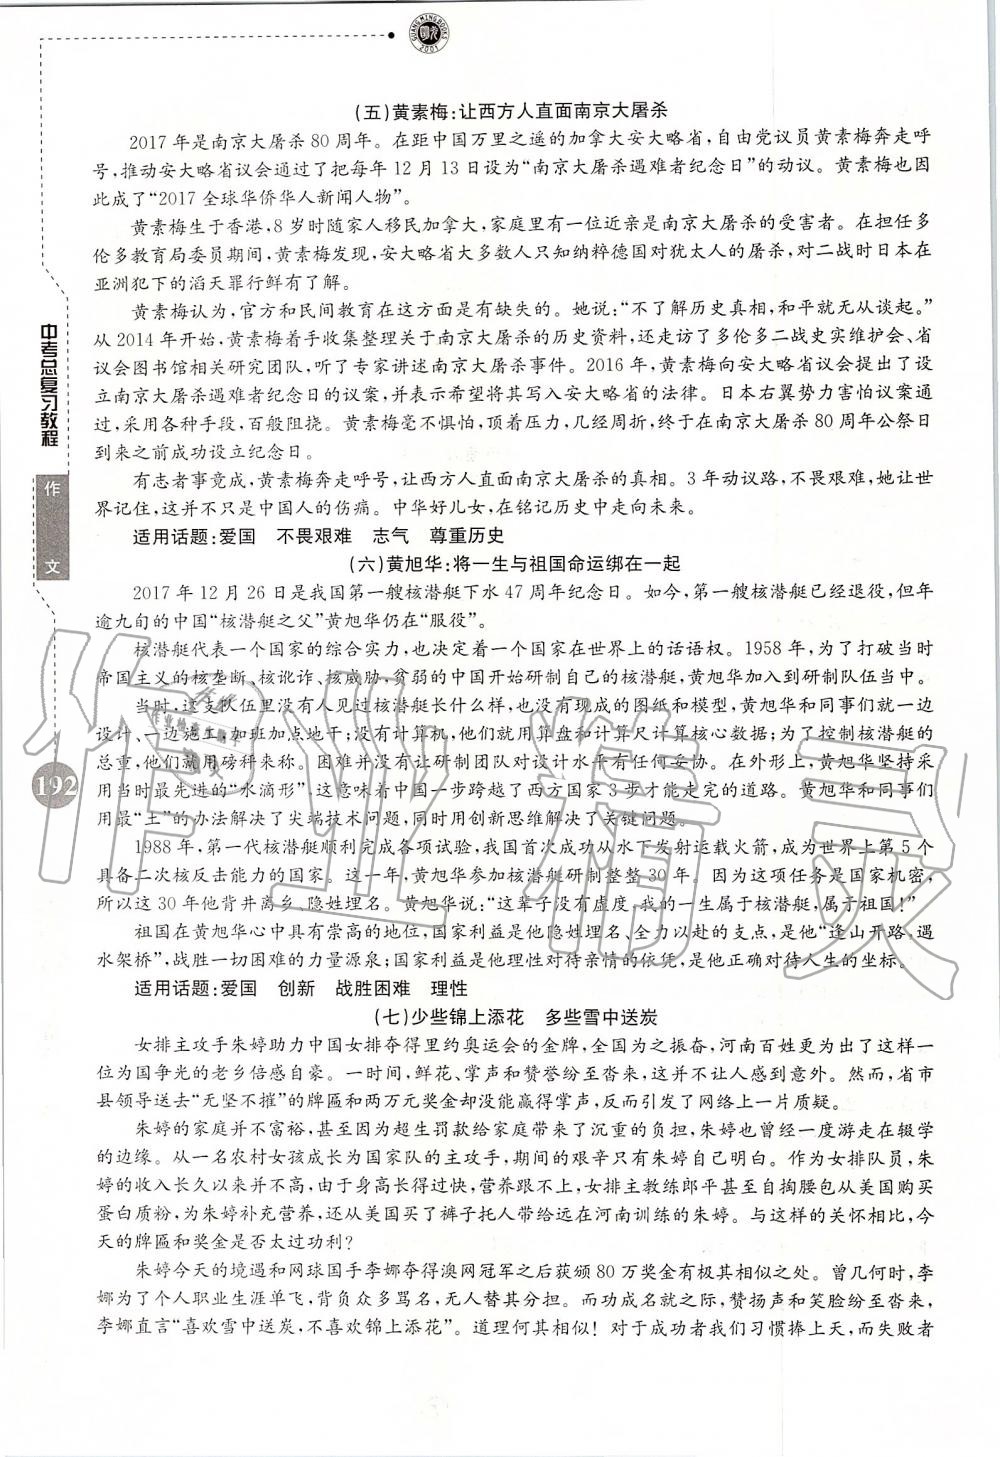 GUANG MING BOOKS
2001
(五)黄素梅:让西方人直面南京大屠杀
2017 年是南京大屠杀 80 周年。在距中国万里之遥的加拿大安大略省,自由党议员黄素梅奔走呼
号,推动安大略省议会通过了把每年 12 月 13 日设为“南京大屠杀遇难者纪念日”的动议。黄素梅也因
此成了“2017 全球华侨华人新闻人物”。
黄素梅生于香港,8 岁时随家人移民加拿大,家庭里有一位近亲是南京大屠杀的受害者。在担任多
伦多教育局委员期间,黄素梅发现,安大略省大多数人只知纳粹德国对犹太人的屠杀,对二战时日本在
亚洲犯下的滔天罪行鲜有了解。
黄素梅认为,官方和民间教育在这方面是有缺失的。她说:“不了解历史真相,和平就无从谈起。”
从 2014 年开始,黄素梅着手收集整理关于南京大屠杀的历史资料,还走访了多伦多二战史实维护会、省
议会图书馆相关研究团队,听了专家讲述南京大屠杀事件。2016 年,黄素梅向安大略省议会提出了设
立南京大屠杀遇难者纪念日的议案,并表示希望将其写入安大略省的法律。日本右翼势力害怕议案通
过,采用各种手段,百般阻挠。黄素梅毫不惧怕,顶着压力,几经周折,终于在南京大屠杀 80 周年公祭日
到来之前成功设立纪念日。
有志者事竟成,黄素梅奔走呼号,让西方人直面南京大屠杀的真相。3 年动议路,不畏艰难,她让世
界记住,这并不只是中国人的伤痛。中华好儿女,在铭记历史中走向未来。
适用话题:爱国 不畏艰难 志气 尊重历史
(六)黄旭华:将一生与祖国命运绑在一起
2017 年 12 月 26 日是我国第一艘核潜艇下水 47 周年纪念日。如今,第一艘核潜艇已经退役,但年
逾九旬的中国“核潜艇之父”黄旭华仍在“服役”。
核潜艇代表一个国家的综合实力,也决定着一个国家在世界上的话语权。1958 年,为了打破当时
帝国主义的核垄断、核讹诈、核威胁,贫弱的中国开始研制自己的核潜艇,黄旭华加入到研制队伍当中。
当时,这支队伍里没有人见过核潜艇长什么样,也没有现成的图纸和模型,黄旭华和同事们就一边
设计、一边施工,加班加点地干;没有计算机,他们就用算盘和计算尺计算核心数据;为了控制核潜艇的
总重,他们就用磅秤来称。困难并没有让研制团队对设计水平有任何妥协。在外形上,黄旭华坚持采
用当时最先进的“水滴形”,这意味着中国一步跨越了西方国家 3 步才能走完的道路。黄旭华和同事们
用最“土”的办法解决了尖端技术问题,同时用创新思维解决了关键问题。
1988 年,第一代核潜艇顺利完成各项试验,我国首次成功从水下发射运载火箭,成为世界上第 5 个
具备二次核反击能力的国家。这一年,黄旭华参加核潜艇研制整整 30 年。因为这项任务是国家机密,
所以这 30 年他背井离乡、隐姓埋名。黄旭华说:“这辈子没有虚度,我的一生属于核潜艇,属于祖国!”
祖国在黄旭华心中具有崇高的地位,国家利益是他隐姓埋名、全力以赴的支点,是他“逢山开路、遇
水架桥”,战胜一切困难的力量源泉;国家利益是他理性对待亲情的依凭,是他正确对待人生的坐标。
适用话题:爱国 创新 战胜困难 理性
(七)少些锦上添花 多些雪中送炭
女排主攻手朱婷助力中国女排夺得里约奥运会的金牌,全国为之振奋,河南百姓更为出了这样一
位为国争光的老乡倍感自豪。一时间,鲜花、掌声和赞誉纷至沓来,这并不让人感到意外。然而,省市
县领导送去“无坚不摧”的牌匾和两万元奖金却没能赢得掌声,反而引发了网络上一片质疑。
朱婷的家庭并不富裕,甚至因为超生罚款给家庭带来了沉重的负担,朱婷也曾经一度游走在辍学
的边缘。从一名农村女孩成长为国家队的主攻手,期间的艰辛只有朱婷自己明白。作为女排队员,朱
婷的收入长久以来并不高,由于身高长得过快,营养跟不上,女排主教练郎平甚至自掏腰包从美国购买
蛋白质粉,为朱婷补充营养,还从美国买了裤子托人带给远在河南训练的朱婷。与这样的关怀相比,今
天的牌匾和奖金是否太过功利?
朱婷今天的境遇和网球国手李娜夺得澳网冠军之后获颁 80 万奖金有极其相似之处。曾几何时,李
娜为了个人职业生涯单飞,背负众多骂名,无人替其分担。而功成名就之际,赞扬声和笑脸纷至沓来,
李娜直言“喜欢雪中送炭,不喜欢锦上添花”。道理何其相似!对于成功者我们习惯捧上天,而失败者
中考总复习教程
作文
192
作业精灵